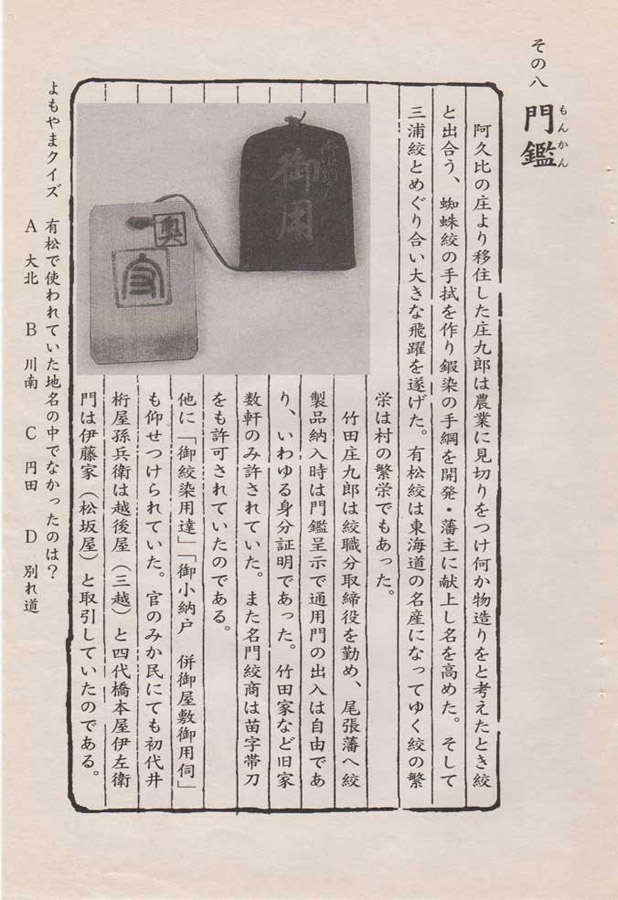 その八　門鑑
もんかん
阿久比の庄より移住した庄九郎は農業に見切りをつけ何か物造りをと考えたとき絞
と出合う、蜘蛛絞の手拭を作り鍜染の手綱を開発・藩主に献上し名を高めた。そして
三浦絞とめぐり合い大きな飛躍を遂げた。有松絞は東海道の名産になってゆく絞の繁
栄は村の繁栄でもあった。
竹田庄九郎は絞職分取締役を勤め、尾張藩へ絞
製品納入時は門鑑呈示で通用門の出入は自由であ
り、いわゆる身分証明であった。竹田家など旧家
数軒のみ許されていた。また名門絞商は苗字帯刀
をも許可されていたのである。
他に「御絞染用達」「御小納戸　併御屋敷御用伺」
も仰せつけられていた。官のみか民にても初代井
桁屋孫兵衛は越後屋（三越）と四代橋本屋伊左衛
門は伊藤家（松坂屋）と取引していたのである。
御用
奥
よもやまクイズ　有松で使われていた地名の中でなかったのは？
A　大北　B　川南　C　円田　D　別れ道